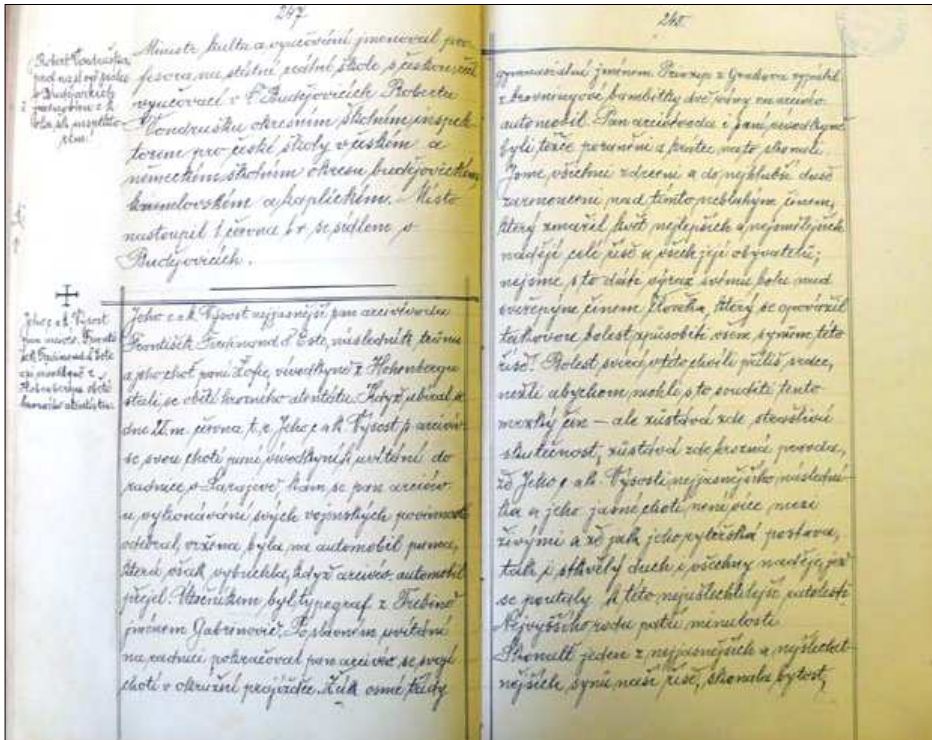 247.
Robert Vondruška
c. k.
Ministr kultu a vyučování jmenoval pro-
fesora na státní reálné škole s českou řečí
vyučovací v Č. Budějovicích Roberta
Vondrušku okresním školním inspek-
torem pro české školy v českém a
německém školním okresu budějovickém,
krumlovském a kaplickém. Místo
nastoupil 1. června t. r. se sídlem v
Budějovicích.
Jeho c. a k. Výsost
pan arciv. Franti-
šek Ferdinand d'Este
Hohenbergu obětí
hrozného atentátu.
Jeho c. a k. Výsost nejjasnější pan arcivévoda
František Ferdinand d'Este, následník trůnu
a jeho choť paní Žofie, vévodkyně z Hohenbergu
stali se obětí hrozného atentátu. Když ubíral se
dne 28. m. června t. r. Jeho c. a k. Výsost p. arciv.
se svou chotí paní vévodkyní k uvítání do
radnice v Sarajevě, kam se pan arciv.
u vykonávání svých vojenských povinností
odebral, vržena byla na automobil puma,
která však vybuchla, když arciv. automobil
přejel. Útočníkem byl typograf z Trebině
jménem Gabrinovič. Po slavném uvítání
na radnici pokračoval pan arciv. se svojí
chotí v okružní projížďce. Žák osmé třídy
248.
gymnasiální jménem Princip z Grahova vypálil
z browningové bambitky dvě rány na arciv.
automobil. Pan arcivévoda i paní vévodkyně
byli těžce poraněni a krátce na to skonali.
Jsme všichni zdrceni a do nejhlubší duše
zarmouceni nad tímto neblahým činem,
který zmařil květ nejlepších a nejsmělejších
nadějí celé říše a všech její obyvatelů;
nejsme s to dáti výraz svému bolu nad
zvěřeným činem člověka, který se opovážil
takovou bolest způsobiti všem synům této
říše. Bolest svírá v této chvíli příliš srdce,
nežli abychom mohli s to souditi tento
mrzký čin – ale zůstává zde strašlivá
skutečnost, zůstává zde hrozná pravda,
že Jeho c. a k. Výsosti nejjasnějšího následní-
ka a jeho jasné choti není více mezi
živými a že jak jeho rytířská postava,
tak i skvělý duch i všechny naděje, jež
se poutaly k této nejušlechtilejší ratolesti
Nejvyššího rodu patří minulosti.
Skonal jeden z nejjasnějších a nejšlechet-
nějších synů naší říše, skonala bytost,